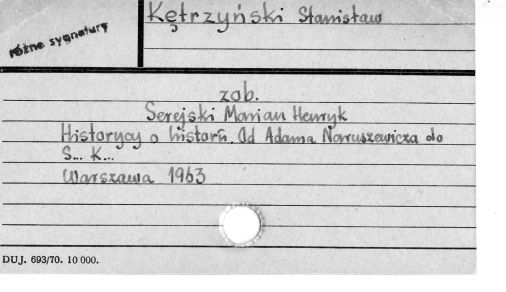 Kętrzyński Stanisław
różne sygnatury
zob.
Serejski Marian Henryk
Historycy o historii. Od Adama Naruszewicza do
S... K...
Warszawa 1963
DUJ. 693/70. 10 000.